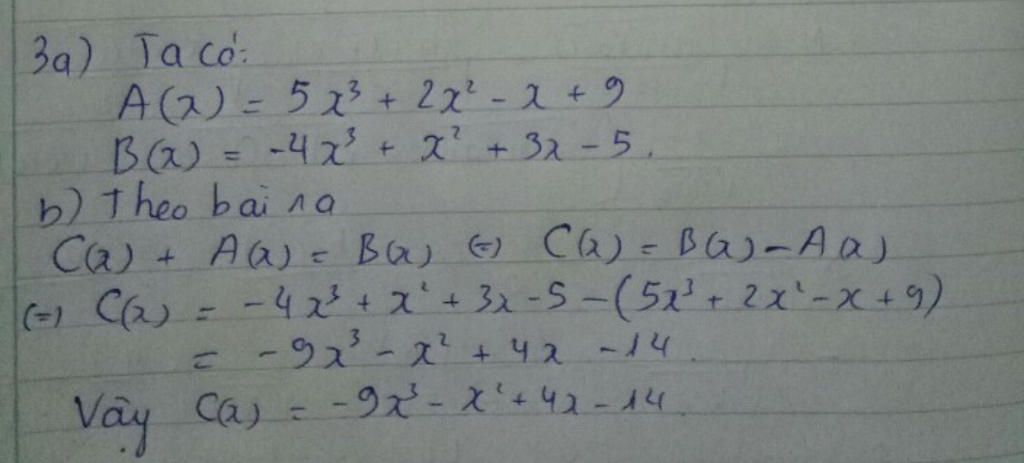 3a) Ta có:
A(x) = 5x³ + 2x² - x + 9
B(x) = -4x³ + x² + 3x - 5.
b) Theo bài ra
C(x) + A(x) = B(x) (=) C(x) = B(x) - A(x)
(=) C(x) = -4x³ + x² + 3x - 5 - (5x³ + 2x² - x + 9)
= -9x³ - x² + 4x - 14.
Vậy C(x) = -9x³ - x² + 4x - 14.